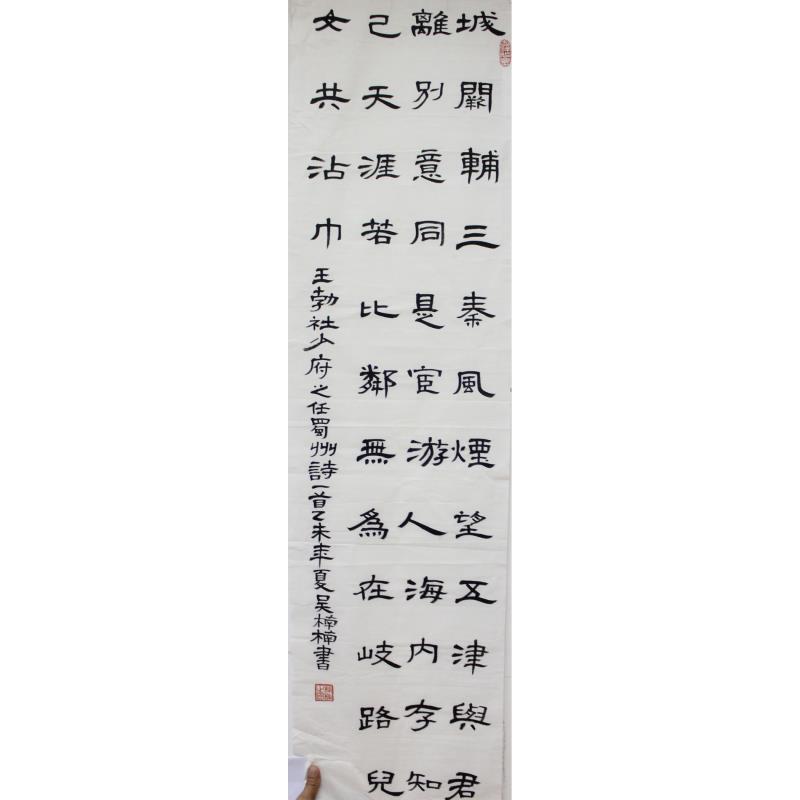 城闕輔三秦風煙望五津與君
離別意同是宦游人海内存知
己天涯若比鄰無為在岐路兒
女共沾巾
王勃杜少府之任蜀州詩一首乙未年夏吴楠楠書